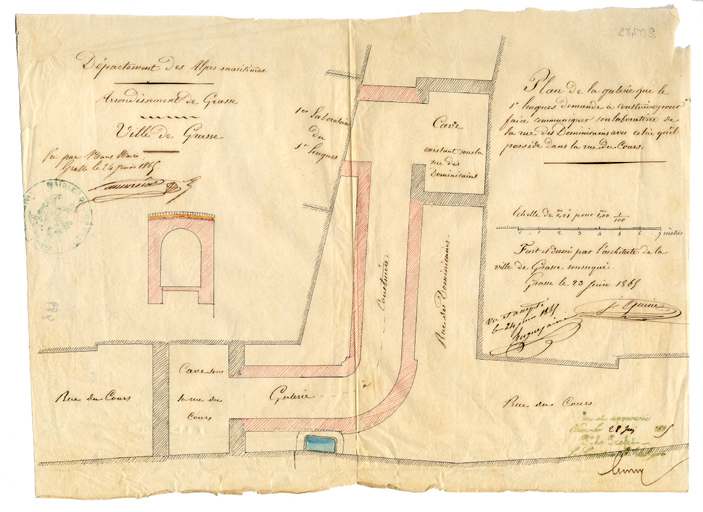 Département des Alpes maritimes
Arrondissement de Grasse
Ville de Grasse
Vu par Nous Maire
Grasse le 24 juin 1865
Plan de la galerie que le
Sr hugues demande à construire pour
faire communiquer son laboratoire de
la rue des Dominicains avec celui qu'il
possède dans la rue du Cours.
Echelle de 0,01 pour 1,00 1/100
0 1 2 3 4 5 6 7 mètres
Fait et dressé par l'architecte de la
ville de Grasse soussigné
Grasse le 23 juin 1865
Vu et accepté
le 24 juin 1865
hugues
Laboratoire
du
Sr hugues
Cave
existant sous la
rue des
Dominicains
Construire
Rue des Dominicains
Rue du Cours
Cave sous
la rue du
Cours
Galerie
Rue du Cours
Vu et approuvé
28 juin 1865
Le Préfet
MAIRIE